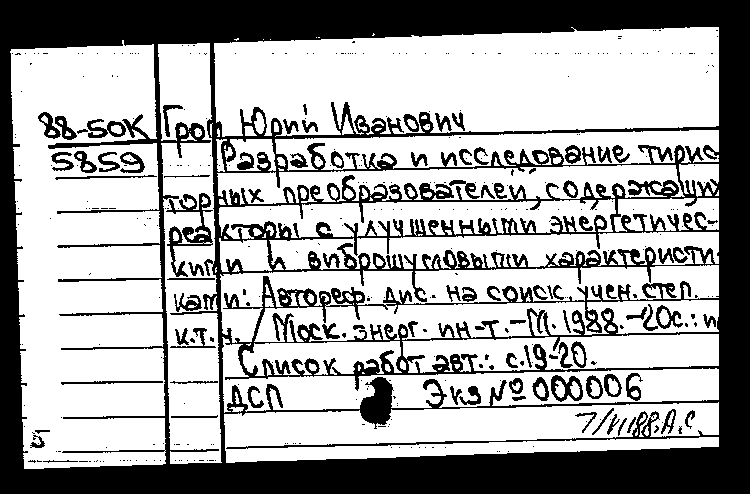 88-50К Гро Юрий Иванович
5859 Разработка и исследование тирис-
торных преобразователей, содержащих
реакторы с улучшенными энергетичес-
кими и виброшумовыми характеристи
ками: Автореф. дис. на соиск. учен. степ.
к.т.н. / Моск. энерг. ин-т.-М. 1988.-20с.:
Список работ авт.: с.19-20.
ДСП Экз № 000006
А.С.